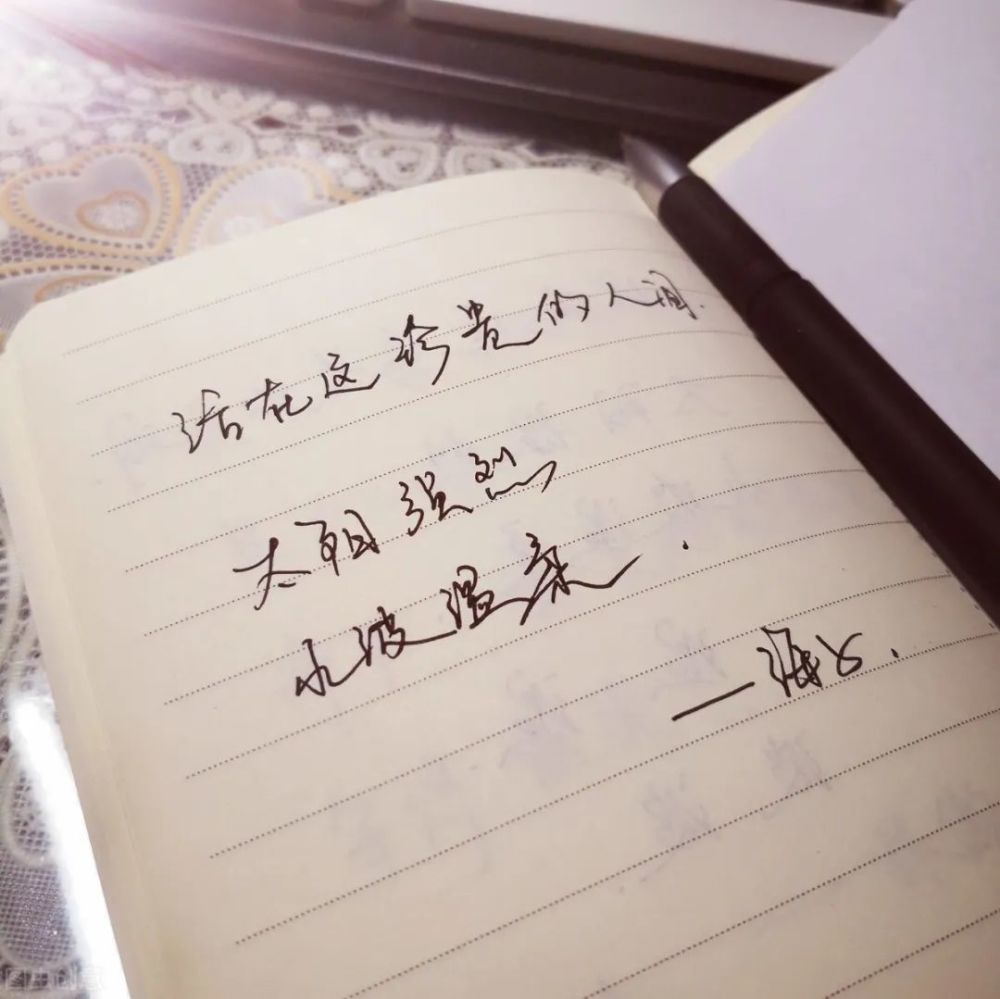 活在这珍贵的人间.
太阳强烈
水波温柔.
——海子.